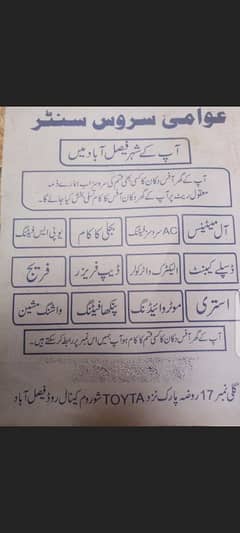 عوامی سروس سنٹر
آپ کے شہر فیصل آباد میں
آپ کے گھر آفس دکان کا کسی بھی قسم کی سروسز اب ہمارے ذمہ
معقول ریٹ پر آپ کے گھر دکان آفس کا کام تسلی بخش کیا جائے گا۔
آل مینٹینس AC سروس فیٹنگ بجلی کا کام یو پی ایس فیٹنگ
ڈسپلے کیبنٹ الیکٹرک واٹر کولر ڈیپ فریزر فریج
استری موٹر وائیڈنگ پنکھا فیٹنگ واشنگ مشین
آپ کے گھر آفس دکان کا کسی قسم کا کام ہو آپ ہمیں اس نمبر پر رابطہ کر سکتے ہیں۔
گلی نمبر 17 روضہ پارک نزد TOYTA شوروم کینال روڈ فیصل آباد